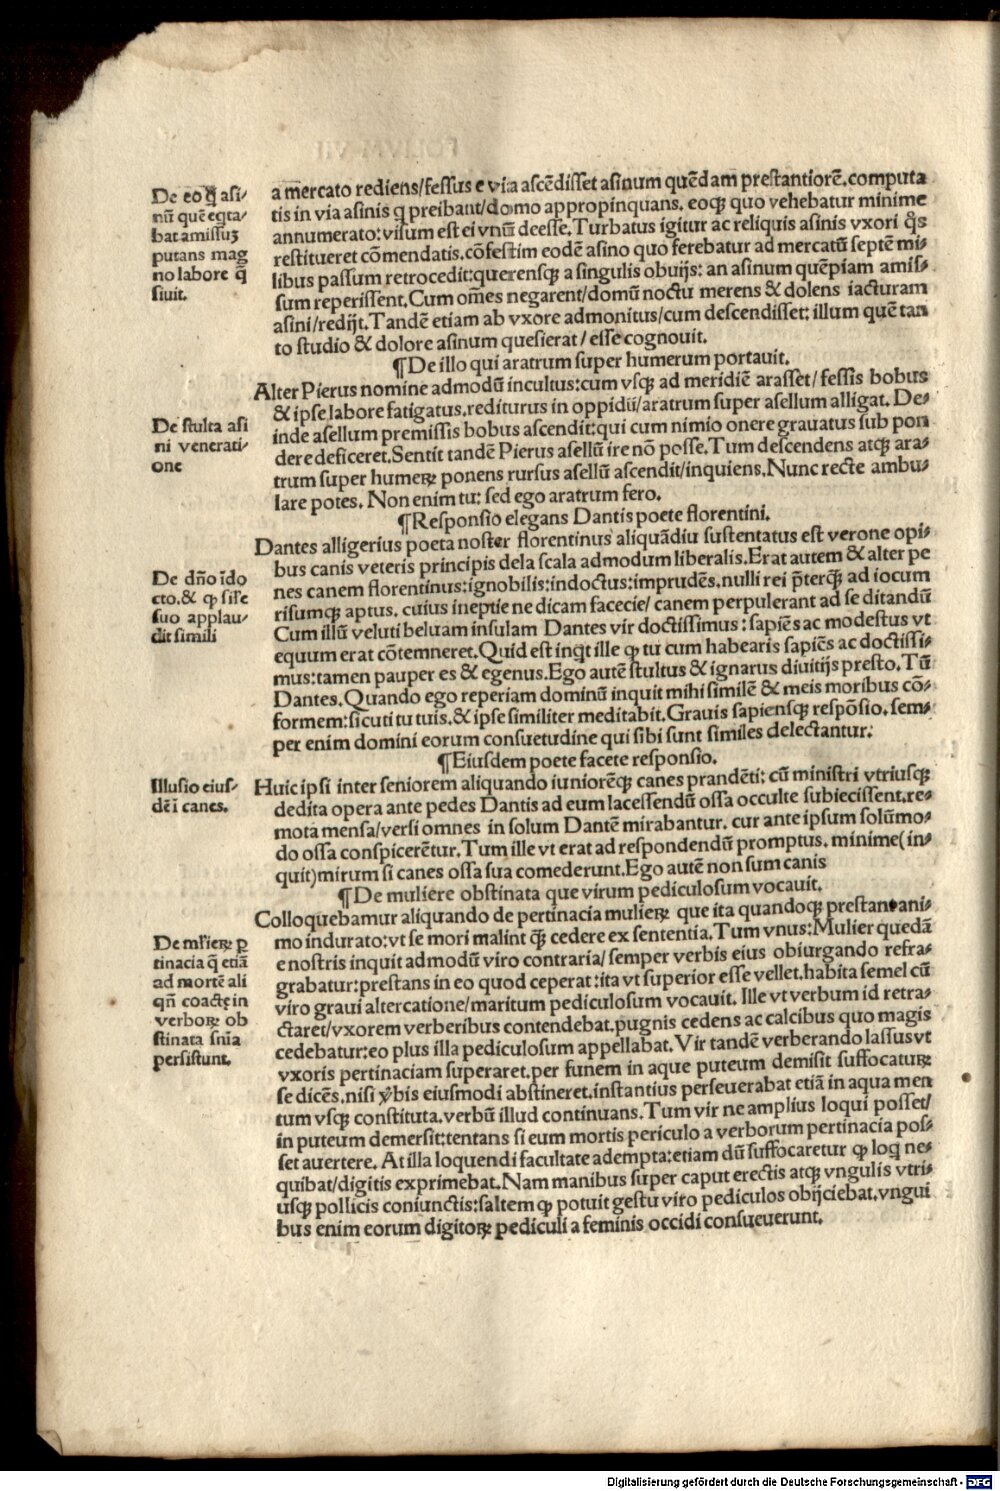 De eo q̄ asi/
nū quē eqta/
bat amissuꝫ
putans mag
no labore q̄
siuit.
a mercato rediens/fessus e via ascēdisset asinum quēdam prestantiorē.computa
tis in via asinis q preibant/domo appropinquans. eoqꝫ quo vehebatur minime
annumerato: visum est ei vnū deesse. Turbatus igitur ac reliquis asinis vxori q̄s
restitueret cōmendatis.cōfestim eodē asino quo ferebatur ad mercatū septē mi/
libus passum retrocedit:querensqꝫ a singulis obuijs: an asinum quēpiam amis/
sum reperissent. Cum om̄es negarent/domū noctu merens & dolens iacturam
asini/redijt. Tandē etiam ab vxore admonitus/cum descendisset: illum quē tan
to studio & dolore asinum quesierat / esse cognouit.
¶De illo qui aratrum super humerum portauit.
De stulta asi
ni venerati/
one
Alter Pierus nomine admodū incultus:cum vsqꝫ ad meridiē arasset/ fessis bobus
& ipse labore fatigatus.rediturus in oppidū/aratrum super asellum alligat. De/
inde asellum premissis bobus ascendit:qui cum nimio onere grauatus sub pon
dere deficeret.Sentit tandē Pierus asellū ire nō posse. Tum descendens atqꝫ ara/
trum super humeꝝ ponens rursus asellū ascendit/inquiens. Nunc recte ambu/
lare potes. Non enim tu: sed ego aratrum fero.
¶Responsio elegans Dantis poete florentini.
De dn̄o ido
cto.& ꝙ sil̄e
suo applau/
dit simili
Dantes alligerius poeta noster florentinus aliquādiu sustentatus est verone opi/
bus canis veteris principis dela scala admodum liberalis.Erat autem & alter pe
nes canem florentinus:ignobilis:indoctus:imprudēs.nulli rei p̄terqꝫ ad iocum
risumqꝫ aptus. cuius ineptie ne dicam facecie/ canem perpulerant ad se ditandū
Cum illū veluti beluam insulam Dantes vir doctissimus : sapiēs ac modestus vt
equum erat cōtemneret.Quid est inqt ille ꝙ tu cum habearis sapiēs ac doctissi/
mus:tamen pauper es & egenus.Ego autē stultus & ignarus diuitijs presto. Tū
Dantes.Quando ego reperiam dominū inquit mihi similē & meis moribus cō/
formem:sicuti tu tuis.& ipse similiter meditabit.Grauis sapiensqꝫ respōsio.sem/
per enim domini eorum consuetudine qui sibi sunt similes delectantur.
¶Eiusdem poete facete responsio.
Illusio eius/
dē i canes.
Huic ipsi inter seniorem aliquando iuniorēqꝫ canes prandēti: cū ministri vtriusqꝫ
dedita opera ante pedes Dantis ad eum lacessendū ossa occulte subiecissent.re/
mota mensa/versi omnes in solum Dantē mirabantur. cur ante ipsum solūmo/
do ossa conspicerētur. Tum ille vt erat ad respondendū promptus. minime(in/
quit)mirum si canes ossa sua comederunt.Ego autē non sum canis
¶De muliere obstinata que virum pediculosum vocauit.
De ml̄ieꝝ p
tinacia q̄ etiā
ad mortē ali
qn̄ coacte in
verboꝝ ob
stinata sn̄ia
persistunt.
Colloquebamur aliquando de pertinacia mulieꝝ que ita quandoqꝫ prestant ani/
mo indurato:vt se mori malint qꝫ cedere ex sententia. Tum vnus: Mulier quedā
e nostris inquit admodū viro contraria/ semper verbis eius obiurgando refra/
grabatur:prestans in eo quod ceperat :ita vt superior esse vellet.habita semel cū
viro graui altercatione/maritum pediculosum vocauit. Ille vt verbum id retra/
ctaret/vxorem verberibus contendebat.pugnis cedens ac calcibus quo magis
cedebatur:eo plus illa pediculosum appellabat. Vir tandē verberando lassus vt
vxoris pertinaciam superaret.per funem in aque puteum demisit suffocatuꝝ
se dicēs.nisi v̄bis eiusmodi abstineret.instantius perseuerabat etiā in aqua men
tum vsqꝫ constituta.verbū illud continuans. Tum vir ne amplius loqui posset/
in puteum demersit:tentans si eum mortis periculo a verborum pertinacia pos/
set auertere. At illa loquendi facultate adempta:etiam dū suffocaretur ꝙ loq ne/
quibat/digitis exprimebat. Nam manibus super caput erectis atqꝫ vngulis vtri/
usqꝫ pollicis coniunctis:saltem ꝙ potuit gestu viro pediculos obijciebat.vngui
bus enim eorum digitoꝝ pediculi a feminis occidi consueuerunt.
Digitalisierung gefördert durch die Deutsche Forschungsgemeinschaft - DFG